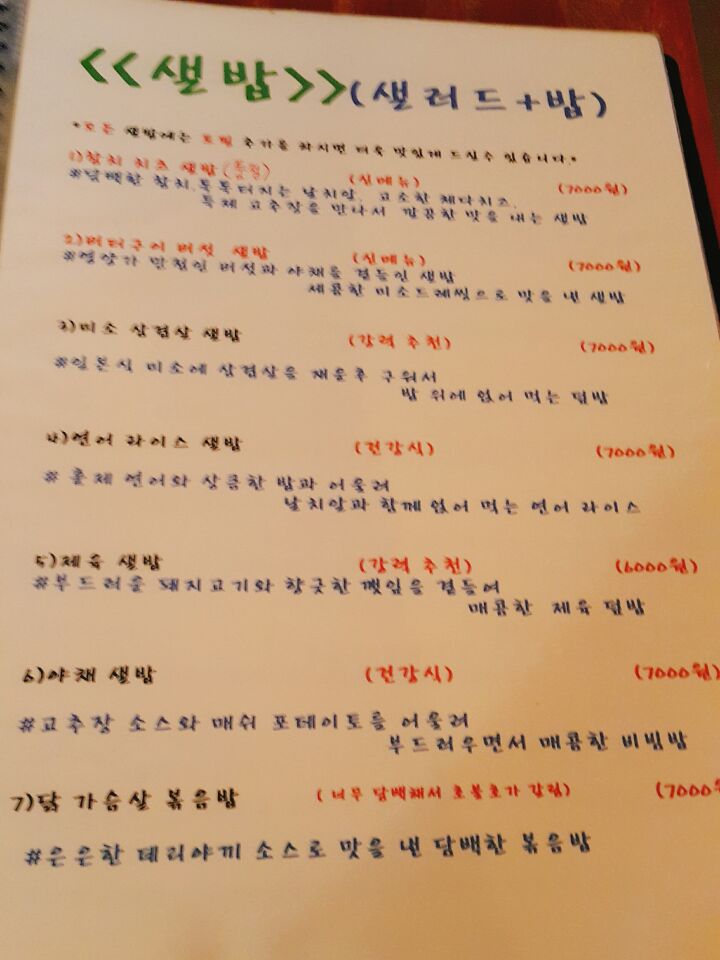 <<샐밥>>(샐러드+밥)
*모든 샐밥에는 토핑 추가를 하시면 더욱 맛있게 드실수 있습니다.*
1)참치 치즈 샐밥 (신메뉴) (7000원)
#담백한 참치, 톡톡터지는 날치알, 고소한 체다치즈,
특제 고추장을 만나서 깔끔한 맛을 내는 샐밥
2)버터구이 버섯 샐밥 (신메뉴) (7000원)
#영양가 만점인 버섯과 야채를 곁들인 샐밥
새콤한 미소드레씽으로 맛을 낸 샐밥
3)미소 삼겹살 샐밥 (강력 추천) (7000원)
#일본식 미소에 삼겹살을 재운후 구워서
밥 위에 얹어 먹는 덮밥
4)연어 라이스 샐밥 (건강식) (7000원)
# 훈제 연어와 상큼한 밥과 어울려
날치알과 함께 얹어 먹는 연어 라이스
5)제육 샐밥 (강력 추천) (6000원)
#부드러운 돼지고기와 향긋한 깻잎을 곁들여
매콤한 제육 덮밥
6)야채 샐밥 (건강식) (7000원)
#고추장 소스와 매쉬 포테이토를 어울려
부드러우면서 매콤한 비빔밥
7)닭 가슴살 볶음밥 (너무 담백해서 호불호가 갈림) (7000원
#은은한 데리야끼 소스로 맛을 낸 담백한 볶음밥